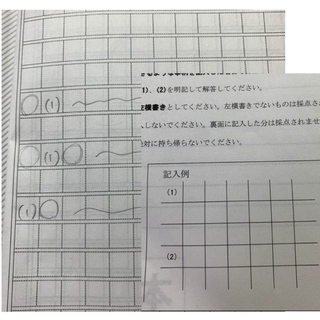 (1)
(1)
(1)
(1)、(2)を明記して解答してください。
左横書きとしてください。左横書きでないものは採点され
しないでください。裏面に記入した分は採点されませ
対に持ち帰らないでください。
記入例
(1)
(2)